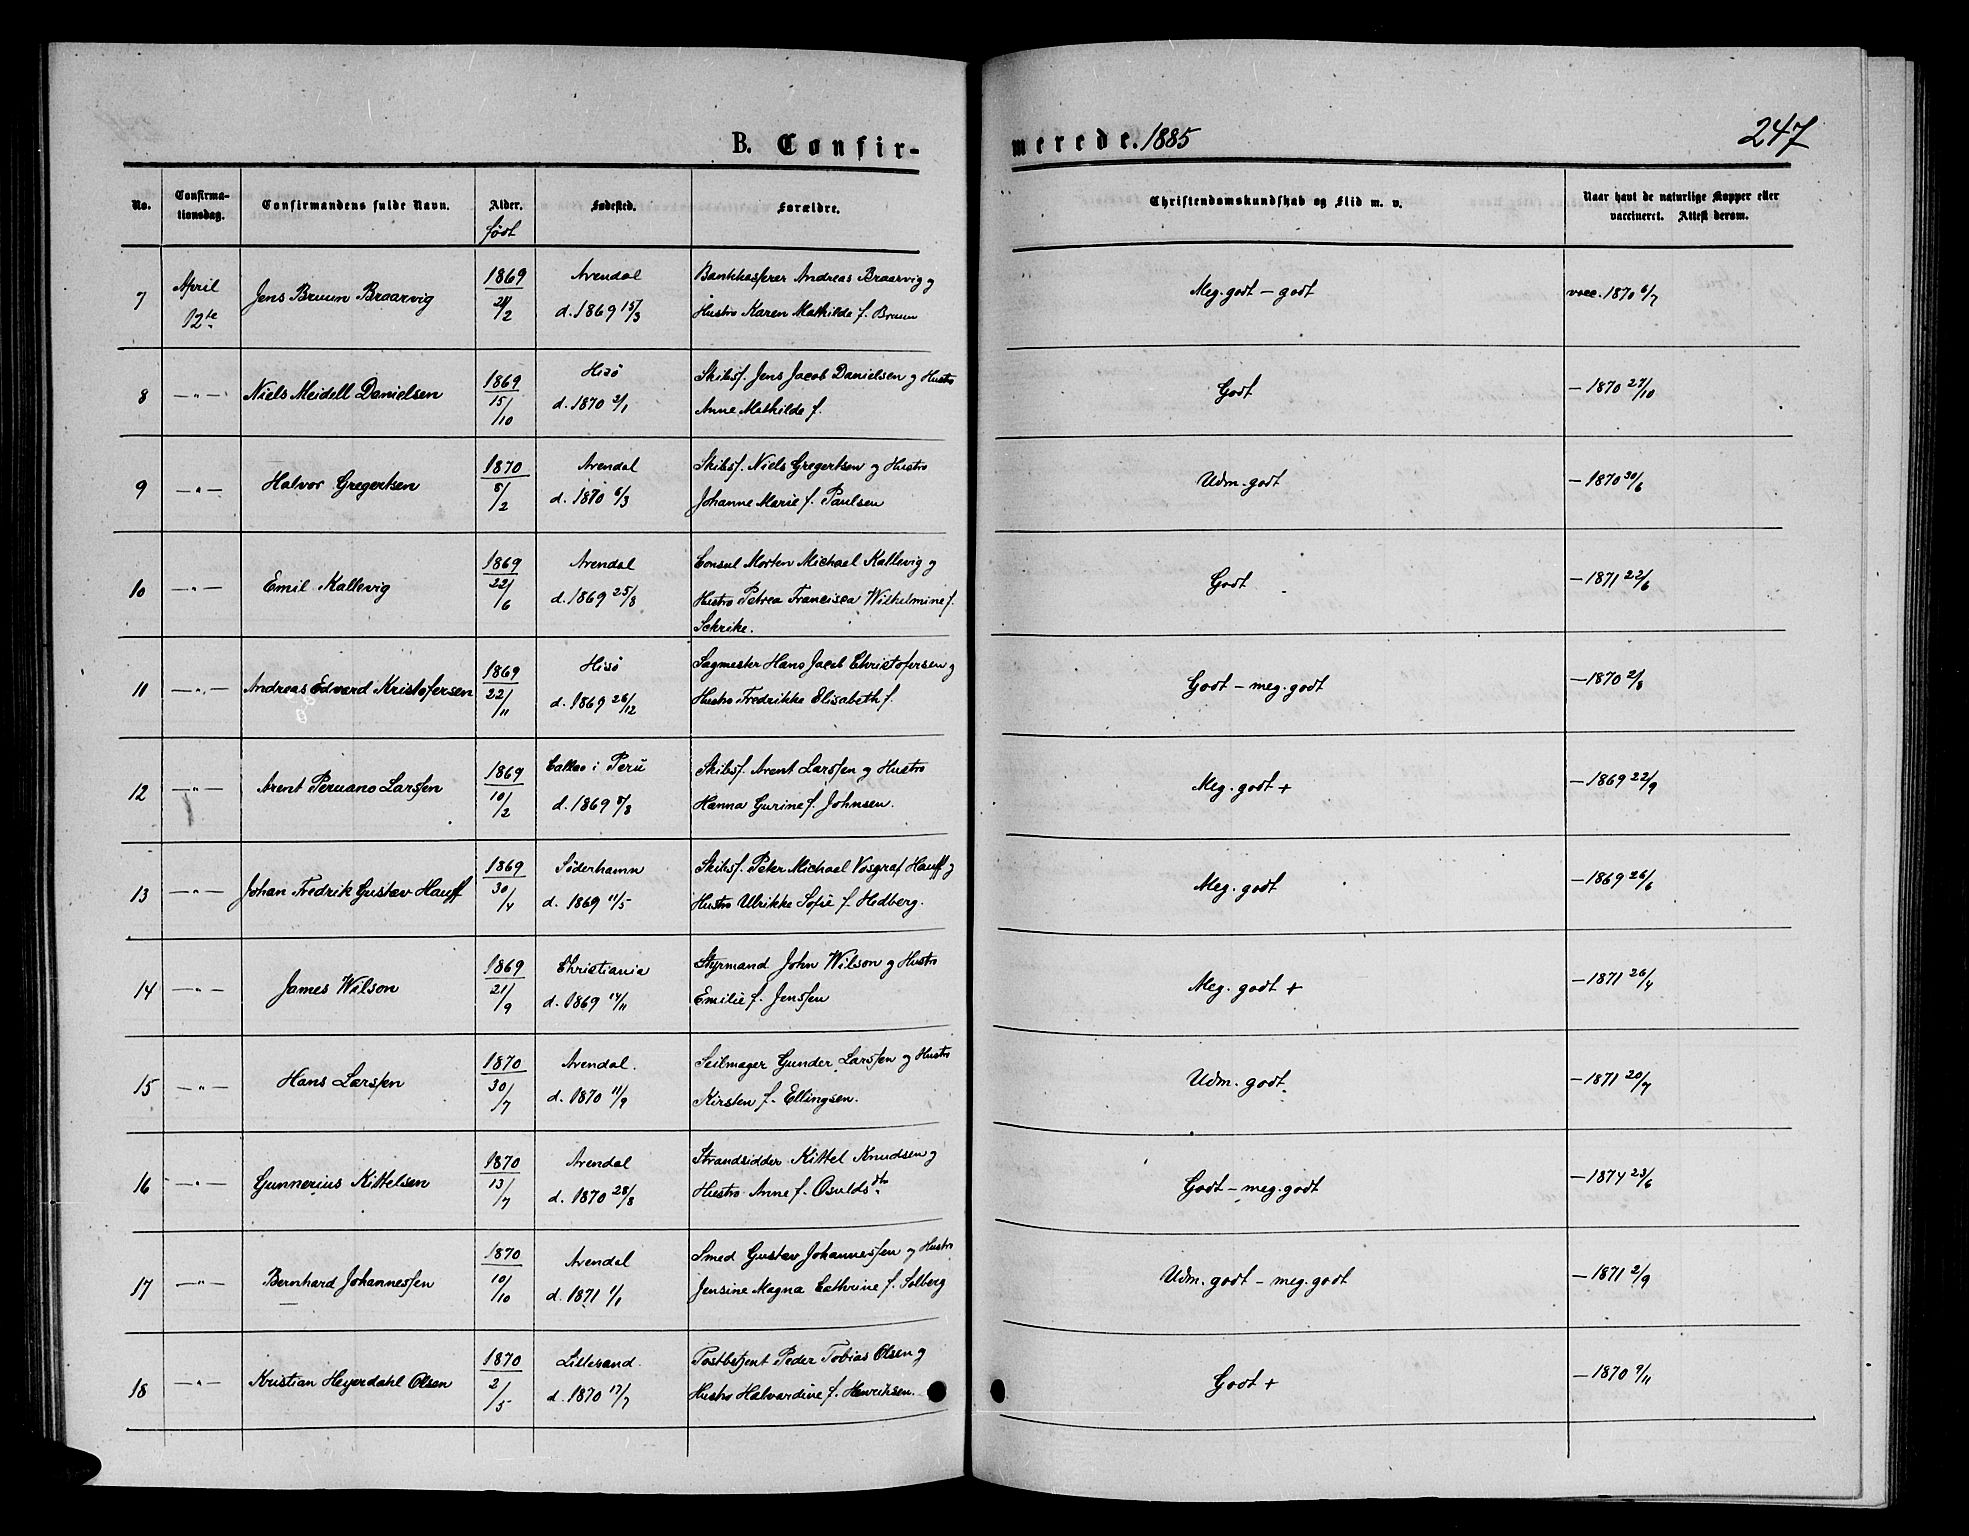 B. Confir-
merede. 1885
247
No.
Confirma-
tionsdag.
Confirmandens fulde Navn.
Alder.
født
Fødested.
Forældre.
Christendomskundskab og Flid m. v.
Naar havt de naturlige Kopper eller
vaccineret. Attest derom.
7 April 12te Jens Bruun Braarvig 1869 Arendal Bankkasserer Andreas Braarvig og
d. 1869 15/3 Hustro Karen Mathilde f. Bruun
Meg. godt – godt
vacc. 1870 6/7
8 –"– Niels Meidell Danielsen 1869 15/10 Hisö Skibsf. Jens Jacob Danielsen og Hustro
d. 1870 2/1 Anne Mathilde f.
Godt
– 1870 27/10
9 –"– Halvor Gregertsen 1870 5/2 Arendal Skibsf. Niels Gregertsen og Hustro
d. 1870 6/3 Johanne Marie f. Paulsen
Udm. godt
– 1870 30/6
10 –"– Emil Kallevig 1869 22/6 Arendal Consul Morten Michael Kallevig og
d. 1869 25/8 Hustro Petrea Francisca Wilhelmine f.
Schrike.
Godt
– 1871 22/6
11 –"– Andreas Edvard Kristofersen 1869 22/11 Hisö Sagmester Hans Jacob Christofersen og
d. 1869 26/12 Hustro Fredrikke Elisabeth f.
Godt – meg. godt
– 1870 2/8
12 –"– Arent Peruano Larssen 1869 10/2 Callao i Peru Skibsf. Arent Larssen og Hustro
d. 1869 8/8 Hanna Gurine f. Johnsen.
Meg. godt +
– 1869 22/9
13 –"– Johan Fredrik Gustav Hauff 1869 30/4 Söderhamn Skibsf. Peter Michael Vosgraf Hauff og
d. 1869 11/5 Hustro Ulrikke Sofie f. Hedberg.
Meg. godt
– 1869 26/6
14 –"– James Wilson 1869 21/9 Christiania Styrmand John Wilson og Hustro
d. 1869 14/11 Emilie f. Jenssen
Meg. godt +
– 1871 26/4
15 –"– Hans Larssen 1870 30/7 Arendal. Seilmager Gunder Larssen og Hustro
d. 1870 11/9 Kirsten f. Ellingsen.
Udm. godt.
– 1871 20/7
16 –"– Gunnerius Kittelsen 1870 13/7 Arendal Strandsidder Kittel Knudsen og
d. 1870 28/8 Hustro Anne f. Osuldsdtr
Godt – meg. godt
– 1874 23/6
17 –"– Bernhard Johannessen 1870 10/10 Arendal Smed Gustav Johannessen og Hustro
d. 1871 1/1 Jensine Magna Cathrine f. Solberg
Udm. godt – meg. godt
– 1871 2/9
18 –"– Kristian Heyerdahl Olsen 1870 2/5 Lillesand Postbetjent Peder Tobias Olsen og
d. 1870 17/7 Hustro Halvardine f. Henriksen.
Godt +
– 1870 9/11